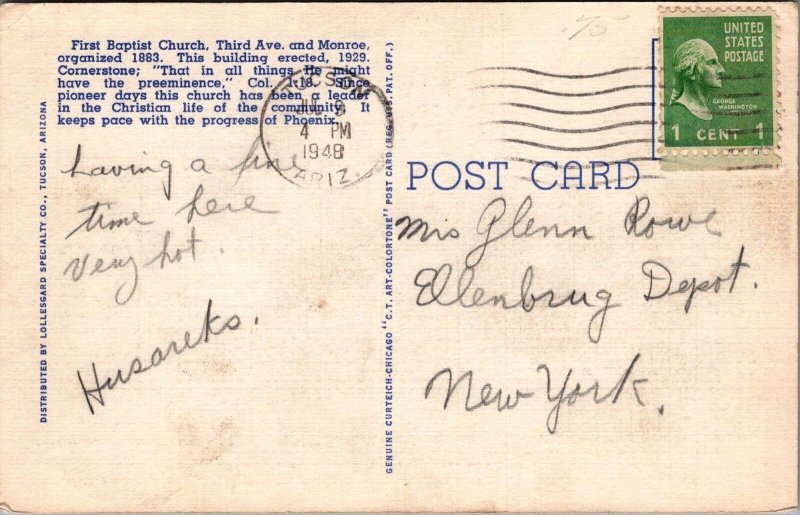 First Baptist Church, Third Ave. and Monroe,
organized 1883. This building erected, 1929.
Cornerstone; "That in all things He might
have the preeminence," Col. 1-18. Since
pioneer days this church has been a leader
in the Christian life of the community. It
keeps pace with the progress of Phoenix.
having a fine
time here
very hot.
Husareks.
DISTRIBUTED BY LOLLESGARD SPECIALTY CO., TUCSON, ARIZONA
GENUINE CURTEICH-CHICAGO "C.T. ART-COLORTONE" POST CARD (REG. U.S. PAT. OFF.)
TUCSON
9
4 PM
1948
ARIZ.
UNITED
STATES
POSTAGE
GEORGE
WASHINGTON
1 CENT 1
POST CARD
Mrs Glenn Rowe
Ellenbrug Depot.
New York.